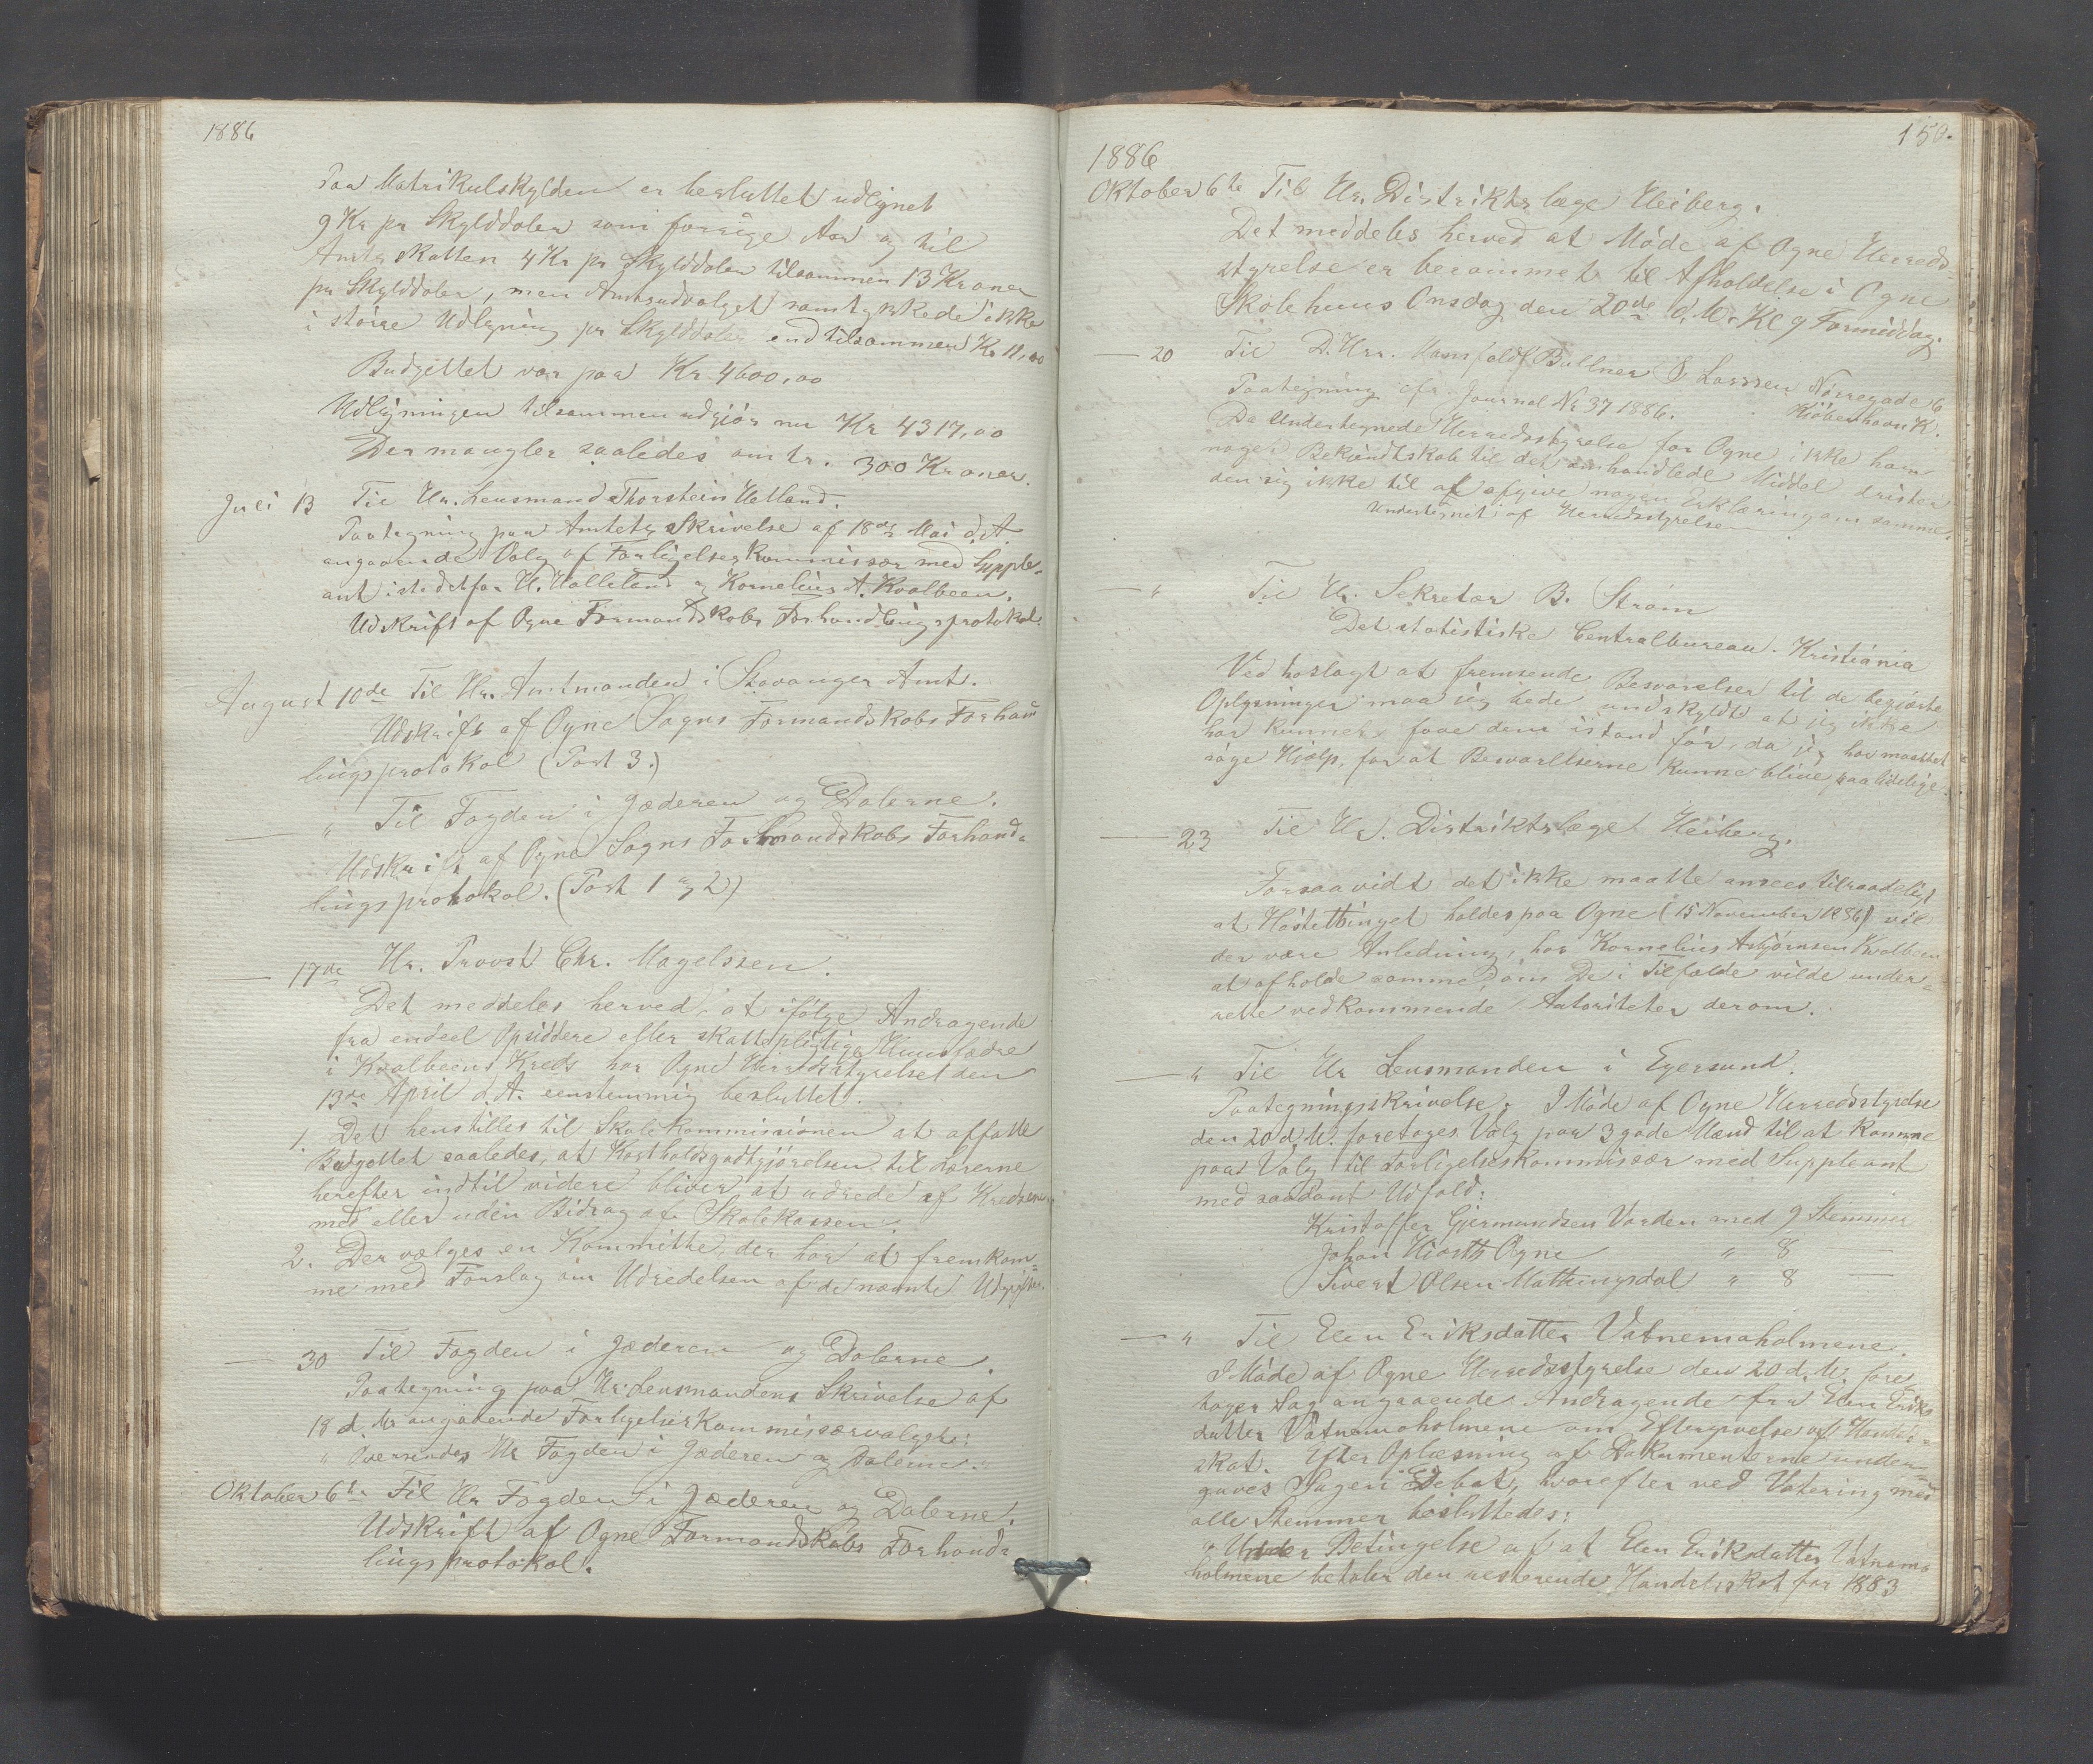 1886
Paa Matrikulskylden er besluttet udlignet
9 Kr pr Skylddaler som forrige Aar og til
Amtsskatten 4 Kr pr Skylddaler tilsammen 13 Kroner
pr Skylddaler, men Amtsudvalget samtykkede ikke
i større Udligning pr Skylddaler end tilsammen Kr 11,00
Budgettet var paa Kr 4600,00
Udligningen tilsammen udgjør nu Kr 4317,00
Der mangler saaledes omtr. 300 Kroner.
Juli 13 Til Hr. Lensmand Thorstein Hetland.
Paategning paa Amtets Skrivelse af 18de Mai d.A.
angaaende Valg af Forligelseskommissær med Supple-
ant istedetfor H. Halleland og Kornelius A. Kvalbeen.
Udskrift af Ogne Formandskabs Forhandlingsprotokol.
August 10de Til Hr. Amtmanden i Stavanger Amt.
Udskrift af Ogne Sogns Formandskabs Forhand
lingsprotokol (Post 3.)
— " Til Fogden i Jæderen og Dalerne.
Udskrift af Ogne Sogns Formandskabs Forhand-
lingsprotokol. (Post 1 og 2)
— 17de Hr. Provst Chr. Magelssen.
Det meddeles herved, at ifølge Andragende
fra endeel Opsiddere eller skattepligtige Huusfædre
i Kvalbeens Kreds har Ogne Herredsstyrelse den
13de April d.A. eenstemmig besluttet.
1. Det henstilles til Skolekommissionen at affatte
Budgettet saaledes, at Kostholdsgodtgjørelsen til Lærerne
herefter indtil videre bliver at udrede af Kredsene
med eller uden Bidrag af Skolekassen.
2. Der vælges en Kommitte, der har at fremkom-
me med Forslag om Udredelsen af de nævnte Udgifter.
— 30 Til Fogden i Jæderen og Dalerne.
Paategning paa Hr. Lensmandens Skrivelse af
18 d. M. angaaende Forligelseskommissærvalget:
" Oversendes Hr Fogden i Jæderen og Dalerne."
Oktober 6te Til Hr Fogden i Jæderen og Dalerne.
Udskrift af Ogne Formandskabs Forhand-
lingsprotokol.
150.
1886
Oktober 6te Til Hr. Distriktslæge Heiberg.
Det meddeles herved at Møde af Ogne Herreds-
styrelse er berammet til Afholdelse i Ogne
Skolehuus Onsdag den 20de d. M. Kl 9 Formiddag.
— 20 Til D. Hrr. Mansfeldt Büllner & Lassen Nørregade 6
Kjøbenhavn K.
Paategning cfr. Journal Nr 37 1886.
Da undertegnede Herredsstyrelse for Ogne ikke har
noget Bekjendtskab til det omhandlede Middel drister
den sig ikke til at afgive nogen Erklæring om samme.
Undertegnet af Herredsstyrelsen
— " Til Hr. Sekretær B. Strøm
Det statistiske Centralbureau. Kristiania
Ved hoslagt at fremsende Besvarelser til de begjærte
Oplysninger maa jeg bede undskyldt at jeg ikke
har kunnet faae dem istand før, da jeg har maattet
søge Hjælp, for at Besvarelserne kunne blive paalidelige.
— 23 Til Hr. Distriktslæge Heiberg.
Forsaavidt det ikke maatte ansees tilraadeligt
at Høstetthinget holdes paa Ogne (15 November 1886) vil
der være Anledning, hos Kornelius Asbjørnsen Kvalbeen
at afholde samme, om De i Tilfælde vilde under-
rette vedkommende Autoriteter derom.
— " Til Hr Lensmanden i Egersund.
Paategningsskrivelse. I Møde af Ogne Herredsstyrelse
den 20 d. M. foretoges Valg paa 3 gode Mænd til at komme
paa Valg til Forligelseskommissær med Suppleant
med saadant Udfald:
Kristoffer Gjermundsen Varden med 9 Stemmer
Johan Hiorth Ogne " 8 —
Sivert Olsen Matningsdal " 8 —
— " Til Elen Eriksdatter Vatnemoholmene.
I Møde af Ogne Herredsstyrelse den 20 d. M. fore
toges Sag angaaende Andragende fra Elen Eriks
datter Vatnemoholmene om Eftergivelse af Handels-
skat. Efter Oplæsning af Dokumenterne under-
gaves Sagen Debat, hvorefter ved Votering med
alle Stemmer besluttedes:
" Under Betingelse af at Elen Eriksdatter Vatnemo
holmene betaler den resterende Handelsskat for 1883